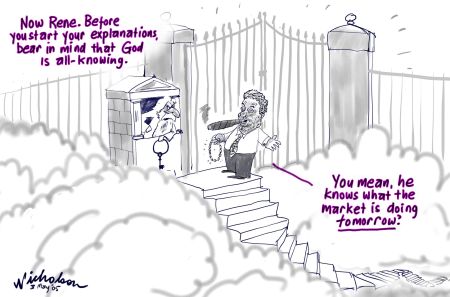 Now Rene. Before
you start your explanations,
bear in mind that God
is all-knowing.
You mean, he
knows what the
market is doing
tomorrow?
Nicholson
3 May 05